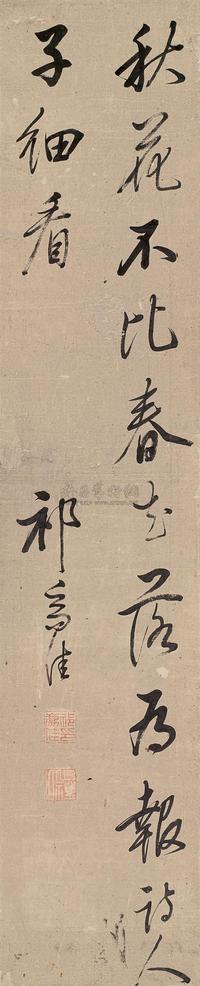 秋花不比春花落為報詩人
子細看
祁豸佳